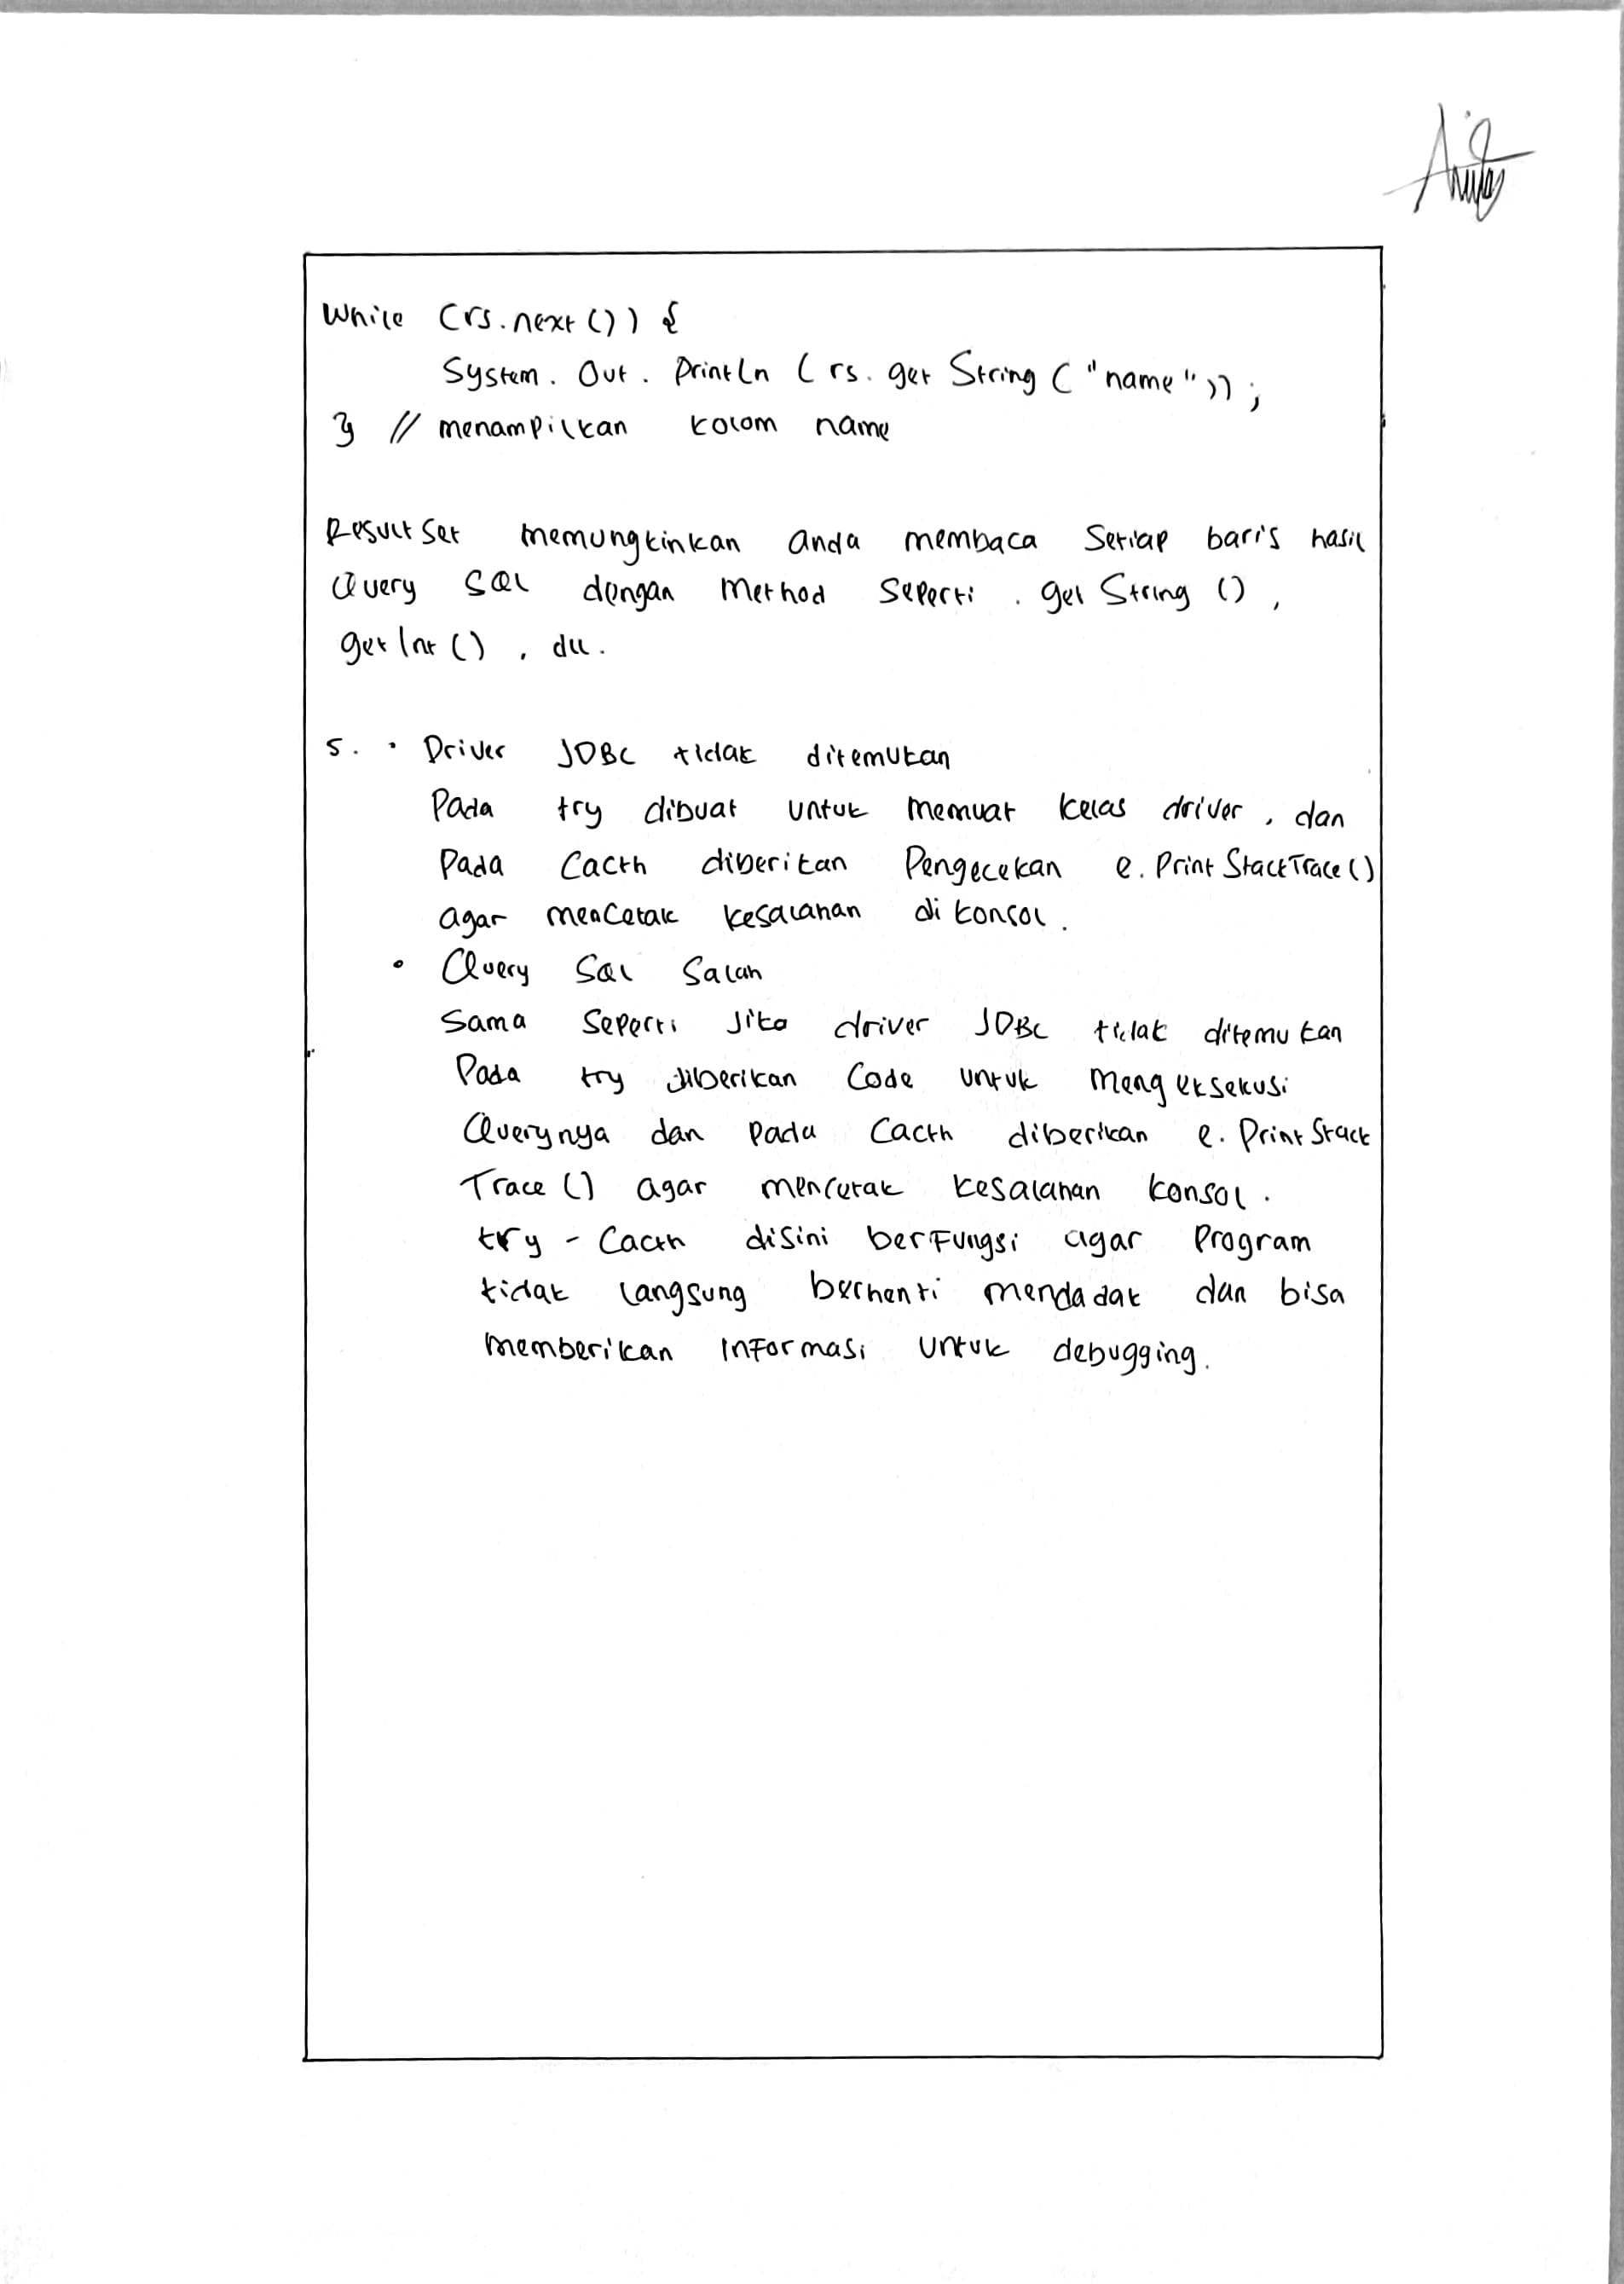 While (rs.next()) {
System. Out. Println (rs. get String ("name"));
} // menampilkan kolom name
Result Set memungkinkan anda membaca Setiap baris hasil
Query SQL dengan Method Seperti . get String () ,
get Int () , dll.
5. • Driver JDBC tidak ditemukan
Pada try dibuat untuk memuat kelas driver , dan
Pada Cacth diberikan Pengecekan e. Print StackTrace ()
agar mencetak kesalahan di konsol .
• Query SQL Salah
Sama Seperti Jika driver JDBC tidak ditemukan
Pada try diberikan Code untuk mengeksekusi
Querynya dan Pada Cacth diberikan e. Print Stack
Trace () agar mencetak kesalahan konsol .
try - Cacth disini berfungsi agar Program
tidak langsung berhenti mendadak dan bisa
memberikan informasi untuk debugging .